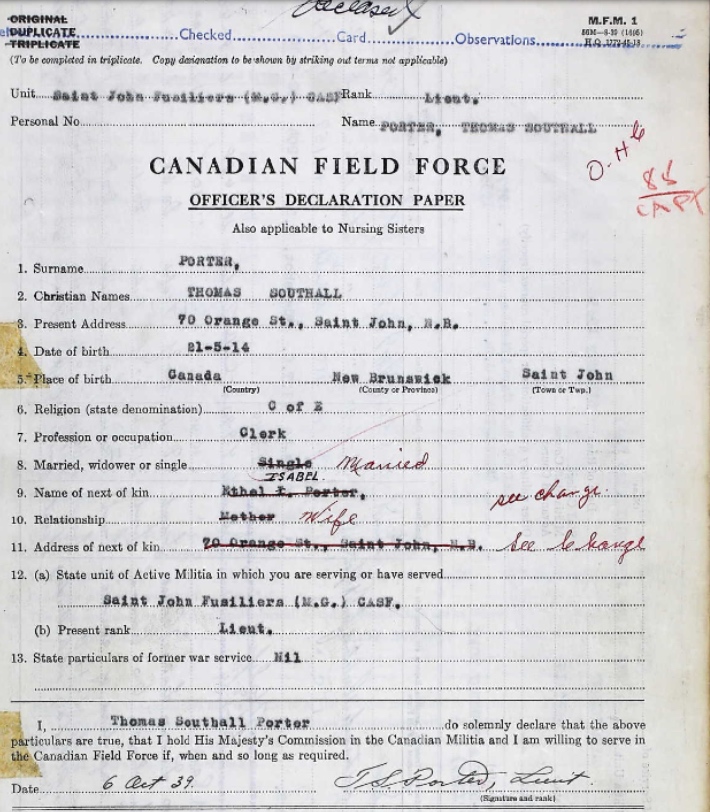 Deceased
ORIGINAL
DUPLICATE
TRIPLICATE
Checked Card Observations
M.F.M. 1
(To be completed in triplicate. Copy designation to be shown by striking out terms not applicable)
Unit Saint John Fusiliers (M.G.) CASF Rank Lieut.
Personal No. Name PORTER, THOMAS SOUTHALL
O.H6
CANADIAN FIELD FORCE
88
CAPT
OFFICER'S DECLARATION PAPER
Also applicable to Nursing Sisters
1. Surname PORTER,
2. Christian Names THOMAS SOUTHALL
3. Present Address 70 Orange St., Saint John, N.B.
4. Date of birth 21-5-14
5. Place of birth Canada New Brunswick Saint John
(Country) (County or Province) (Town or Twp.)
6. Religion (state denomination) C of E
7. Profession or occupation Clerk
8. Married, widower or single Single Married
ISABEL.
9. Name of next of kin Ethel I. Porter, see change.
10. Relationship Mother Wife
11. Address of next of kin 70 Orange St., Saint John, N.B. See Change
12. (a) State unit of Active Militia in which you are serving or have served
Saint John Fusiliers (M.G.) CASF.
(b) Present rank Lieut.
13. State particulars of former war service Nil
I, Thomas Southall Porter do solemnly declare that the above
particulars are true, that I hold His Majesty's Commission in the Canadian Militia and I am willing to serve in
the Canadian Field Force if, when and so long as required.
Date 6 Oct 39. T.S. Porter, Lieut.
(Signature and rank)